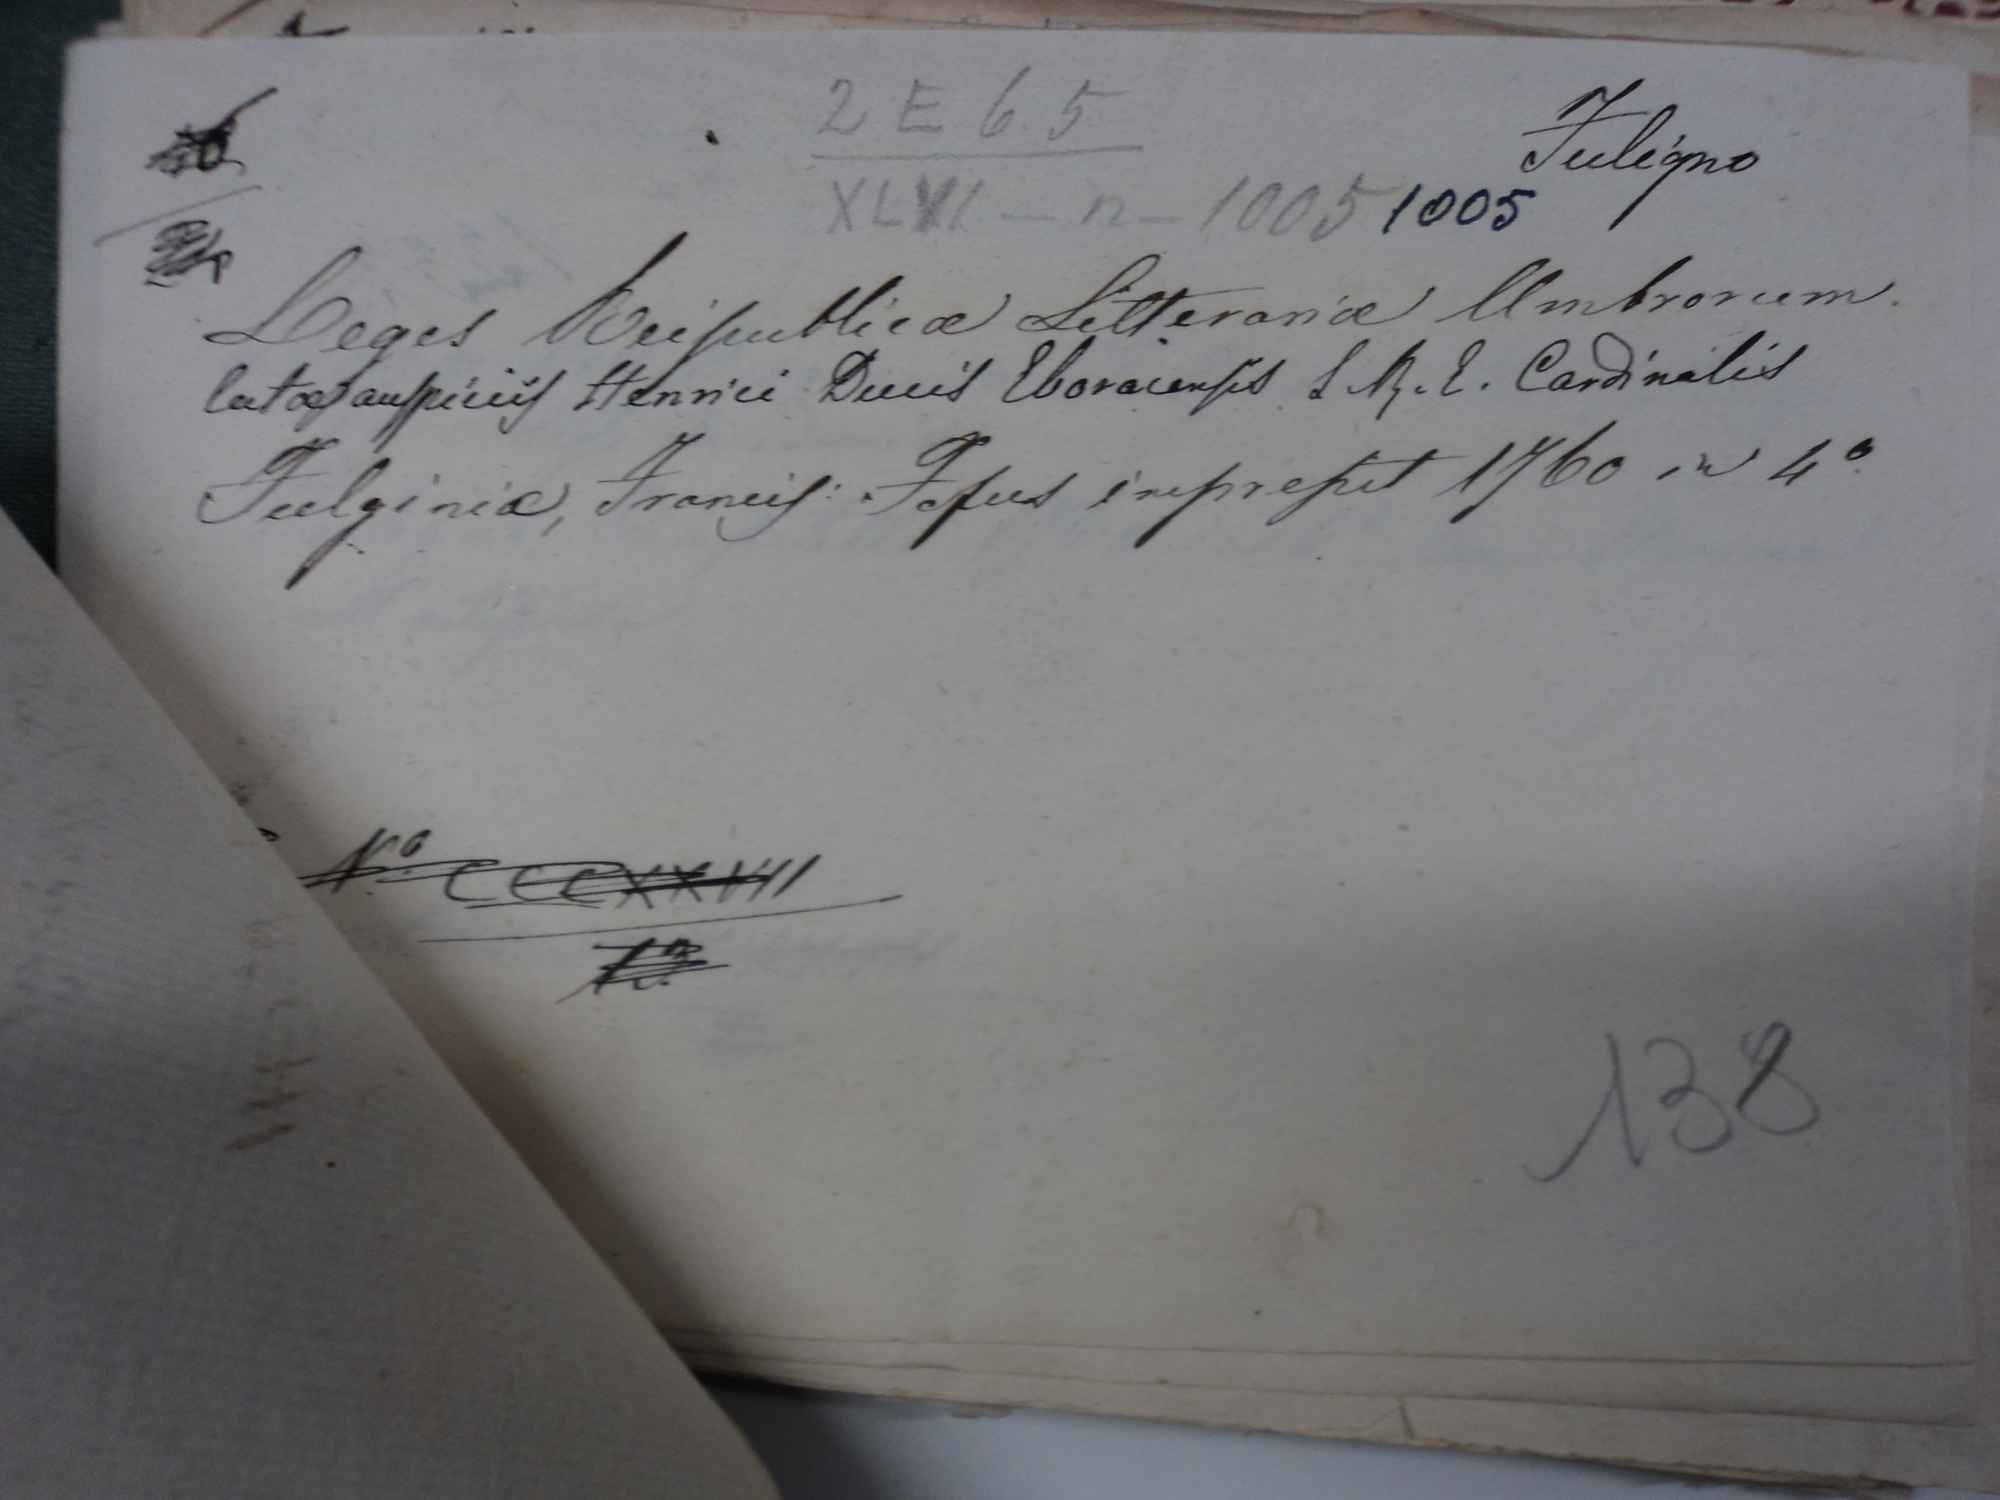 2 E 6.5
Fuligno
XLVI - n - 1005 1005
Leges Reipublicæ Litterariæ Umbrorum.
latæ auspiciis Henrici Ducis Eboracensis S. R. E. Cardinalis
Fulginiæ, Francis: Fofus impressit 1760 in 4º
Nº CCCXXVII
138